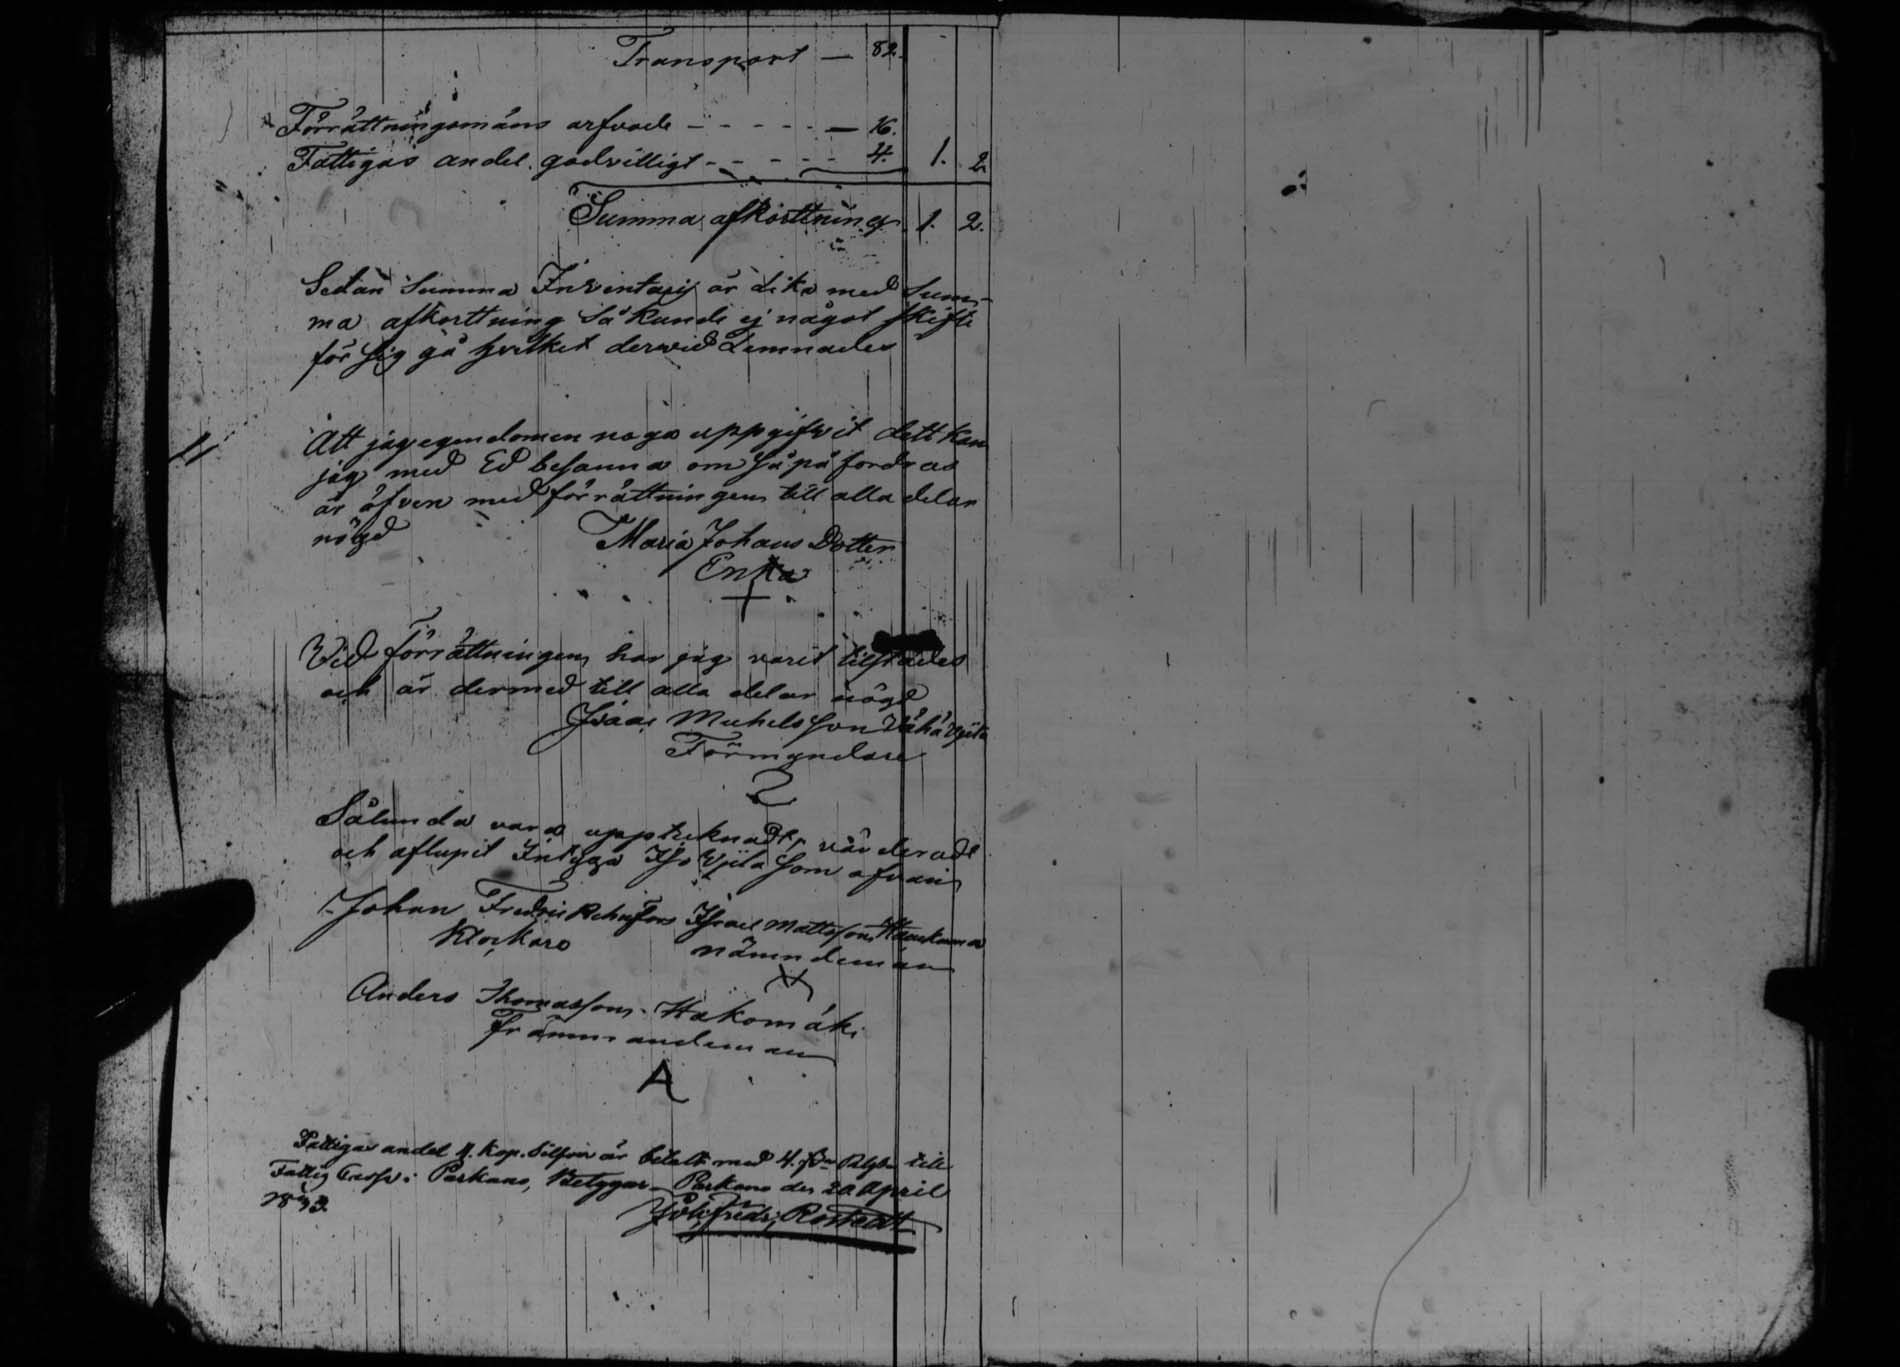 Transport — 82.
Förrättningsmäns arfvode - - - - - — 16.
Fattigas andel godvilligt - - - - - 4. 1. 2
Summa afkorttning 1. 2.
Sedan Summa Inventarij är Lika med Sum-
ma afkorttning Så kunde ej något skifte
för sig gå hvilket dervid Lemnades
Att jag egendomen noga uppgifvit dett kan
jag med Ed besanna om så på fordras
är äfven med förrättningen till alla delar
nögd
Maria Johans Dotter
Enka
Wid förrättningen har jag varit tilstädes
och är dermed till alla delar nögd
Isaac Michelsson Vähä Vjita
Förmyndare
Sålunda vara upptecknadt, värderadt
och aflupit Intyga Vjita som ofvan
Johan Fredric Israel Mattsson
Klockare nämndeman
Anders Thomasson Hakomäki
främmandeman
A
Fattigas andel 4. Kop. Silfver är betalt med 4. till
Fattig Cassa i Parkano, Betygar Parkano den 20 April